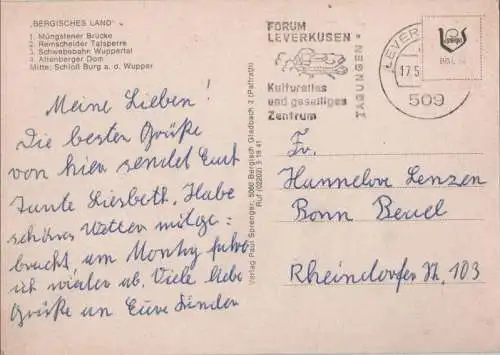 „BERGISCHES LAND"
1. Müngstener Brücke
2. Remscheider Talsperre
3. Schwebebahn Wuppertal
4. Altenberger Dom
Mitte: Schloß Burg a. d. Wupper
Meine Lieben!
Die besten Grüße
von hier sendet Eure
Tante Liesbeth. Habe
schönes Wetter mitge-
bracht, am Montag fahre
ich wieder ab. Viele liebe
Grüße an Eure Kinder
Verlag Paul Sprenger, 5060 Bergisch Gladbach 2 (Paffrath)
Ruf (02202) 5 18 41
FORUM
LEVERKUSEN
Kulturelles
und geselliges
Zentrum
TAGUNGEN
LEVER
17.5
509
Fr.
Hannelore Lenzen
Bonn Beuel
Rheindorfer Str. 103